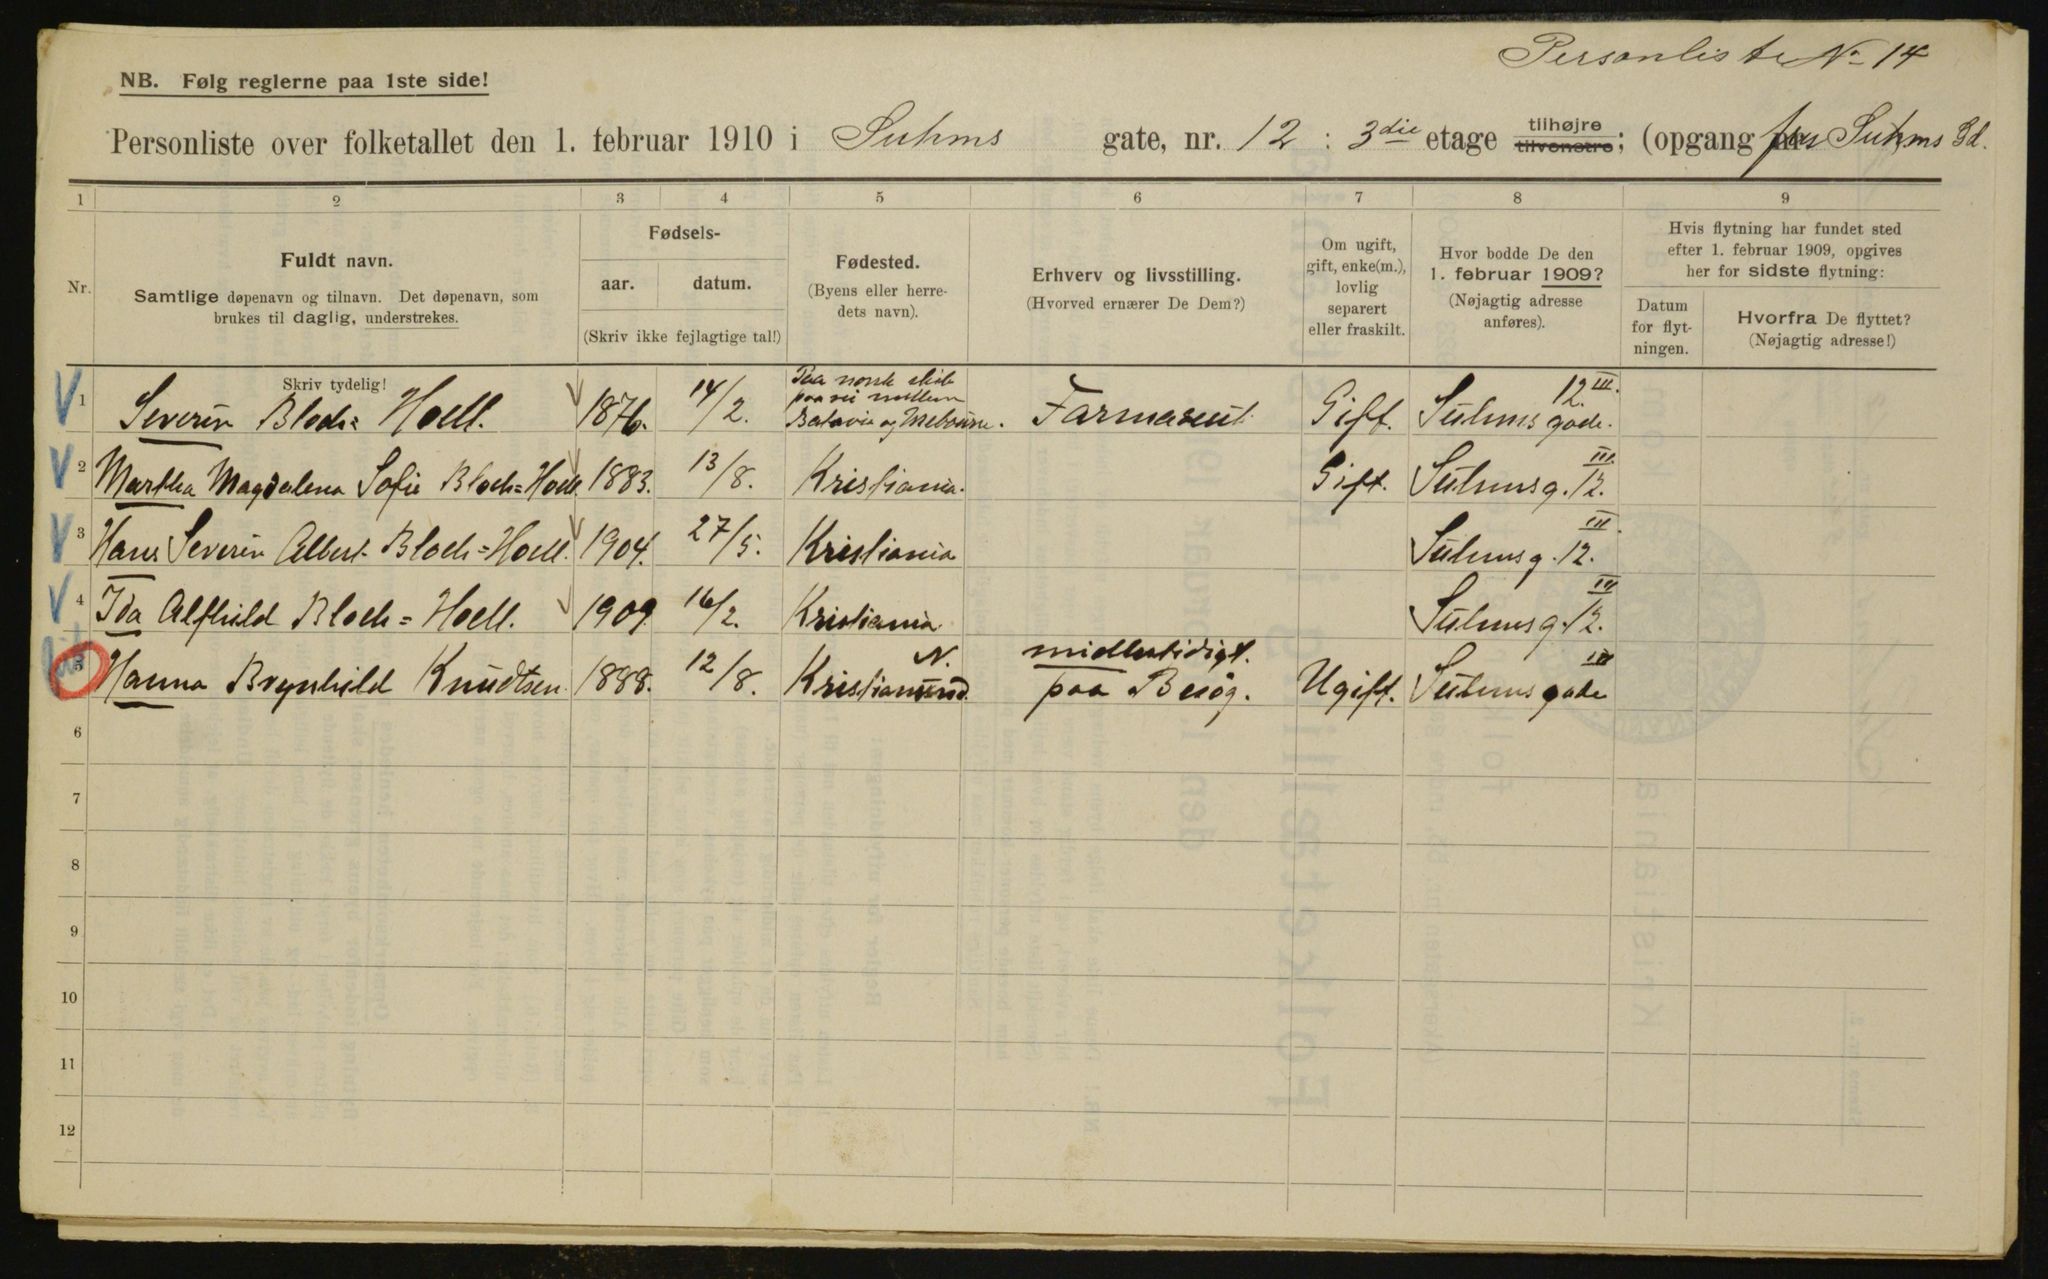 Personliste No 14
NB. Følg reglerne paa 1ste side!
Personliste over folketallet den 1. februar 1910 i Suhms gate, nr. 12 : 3die etage tilhøjre tilvenstre; (opgang fra Suhms Gd.
1 2 3 4 5 6 7 8 9
Nr.
Fuldt navn.
Samtlige døpenavn og tilnavn. Det døpenavn, som
brukes til daglig, understrekes.
Fødsels-
aar. datum.
(Skriv ikke fejlagtige tal!)
Fødested.
(Byens eller herre-
dets navn).
Erhverv og livsstilling.
(Hvorved ernærer De Dem?)
Om ugift,
gift, enke(m.),
lovlig
separert
eller fraskilt.
Hvor bodde De den
1. februar 1909?
(Nøjagtig adresse
anføres).
Hvis flytning har fundet sted
efter 1. februar 1909, opgives
her for sidste flytning:
Datum
for flyt-
ningen.
Hvorfra De flyttet?
(Nøjagtig adresse!)
Skriv tydelig!
1 Severin Bloch=Hoell. 1876. 14/2. Paa norsk skib paa vei mellem Batavia og Melbourne. Farmaceut. Gift. Suhms gade. 12. III.
2 Martha Magdalena Sofie Bloch=Hoell. 1883. 13/8. Kristiania. Gift. Suhmsg. 12. III.
3 Hans Severin Albert Bloch=Hoell. 1904. 27/5. Kristiania Suhmsg. 12. III.
4 Ida Alfhild Bloch=Hoell. 1909 16/2. Kristiania. Suhmsg. 12. III
5 Hanna Brynhild Knudtsen. 1888. 12/8. Kristiansund N. midlertidigt. paa Besøg. Ugift. Suhmsgade III
6
7
8
9
10
11
12